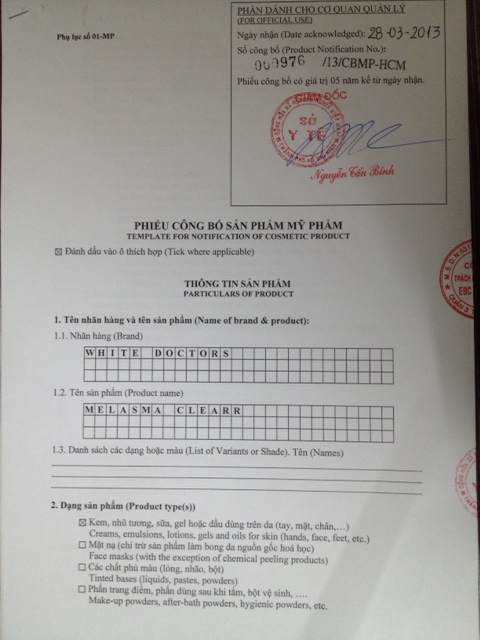 Phụ lục số 01-MP
PHẦN DÀNH CHO CƠ QUAN QUẢN LÝ
(FOR OFFICIAL USE)
Ngày nhận (Date acknowledged): 28-03-2013
Số công bố (Product Notification No.):
000976 /13/CBMP-HCM
Phiếu công bố có giá trị 05 năm kể từ ngày nhận.
GIÁM ĐỐC
SỞ
Y TẾ
Nguyễn Tấn Bỉnh
PHIẾU CÔNG BỐ SẢN PHẨM MỸ PHẨM
TEMPLATE FOR NOTIFICATION OF COSMETIC PRODUCT
☒ Đánh dấu vào ô thích hợp (Tick where applicable)
THÔNG TIN SẢN PHẨM
PARTICULARS OF PRODUCT
1. Tên nhãn hàng và tên sản phẩm (Name of brand & product):
1.1. Nhãn hàng (Brand)
WHITE DOCTORS
1.2. Tên sản phẩm (Product name)
MELASMA CLEARR
1.3. Danh sách các dạng hoặc màu (List of Variants or Shade). Tên (Names)
2. Dạng sản phẩm (Product type(s))
☒ Kem, nhũ tương, sữa, gel hoặc dầu dùng trên da (tay, mặt, chân,....)
Creams, emulsions, lotions, gels and oils for skin (hands, face, feet, etc.)
☐ Mặt nạ (chỉ trừ sản phẩm làm bong da nguồn gốc hoá học)
Face masks (with the exception of chemical peeling products)
☐ Các chất phủ màu (lỏng, nhão, bột)
Tinted bases (liquids, pastes, powders)
☐ Phấn trang điểm, phấn dùng sau khi tắm, bột vệ sinh, ....
Make-up powders, after-bath powders, hygienic powders, etc.